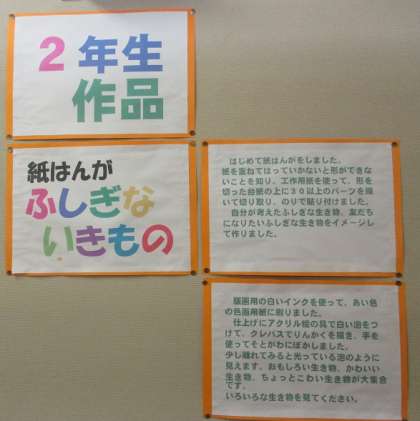 2年生
作品
紙はんが
ふしぎな
いきもの
はじめて紙はんがをしました。
紙を重ねてはっていかないと形ができな
いことを知り、工作用紙を使って、形を
切った台紙の上に30以上のパーツを描
いて切り取り、のりで貼り付けました。
自分が考えたふしぎな生き物、友だち
になりたいふしぎな生き物をイメージし
て作りました。
版画用の白いインクを使って、あい色
の色画用紙に刷りました。
仕上げにアクリル絵の具で白い泡をつ
けて、クレパスでりんかくを描き、手を
使ってそとがわにぼかしました。
少し離れてみると光っている泡のように
見えます。おもしろい生き物、かわいい
生き物、ちょっとこわい生き物が大集合
です。
いろいろな生き物を見てください。